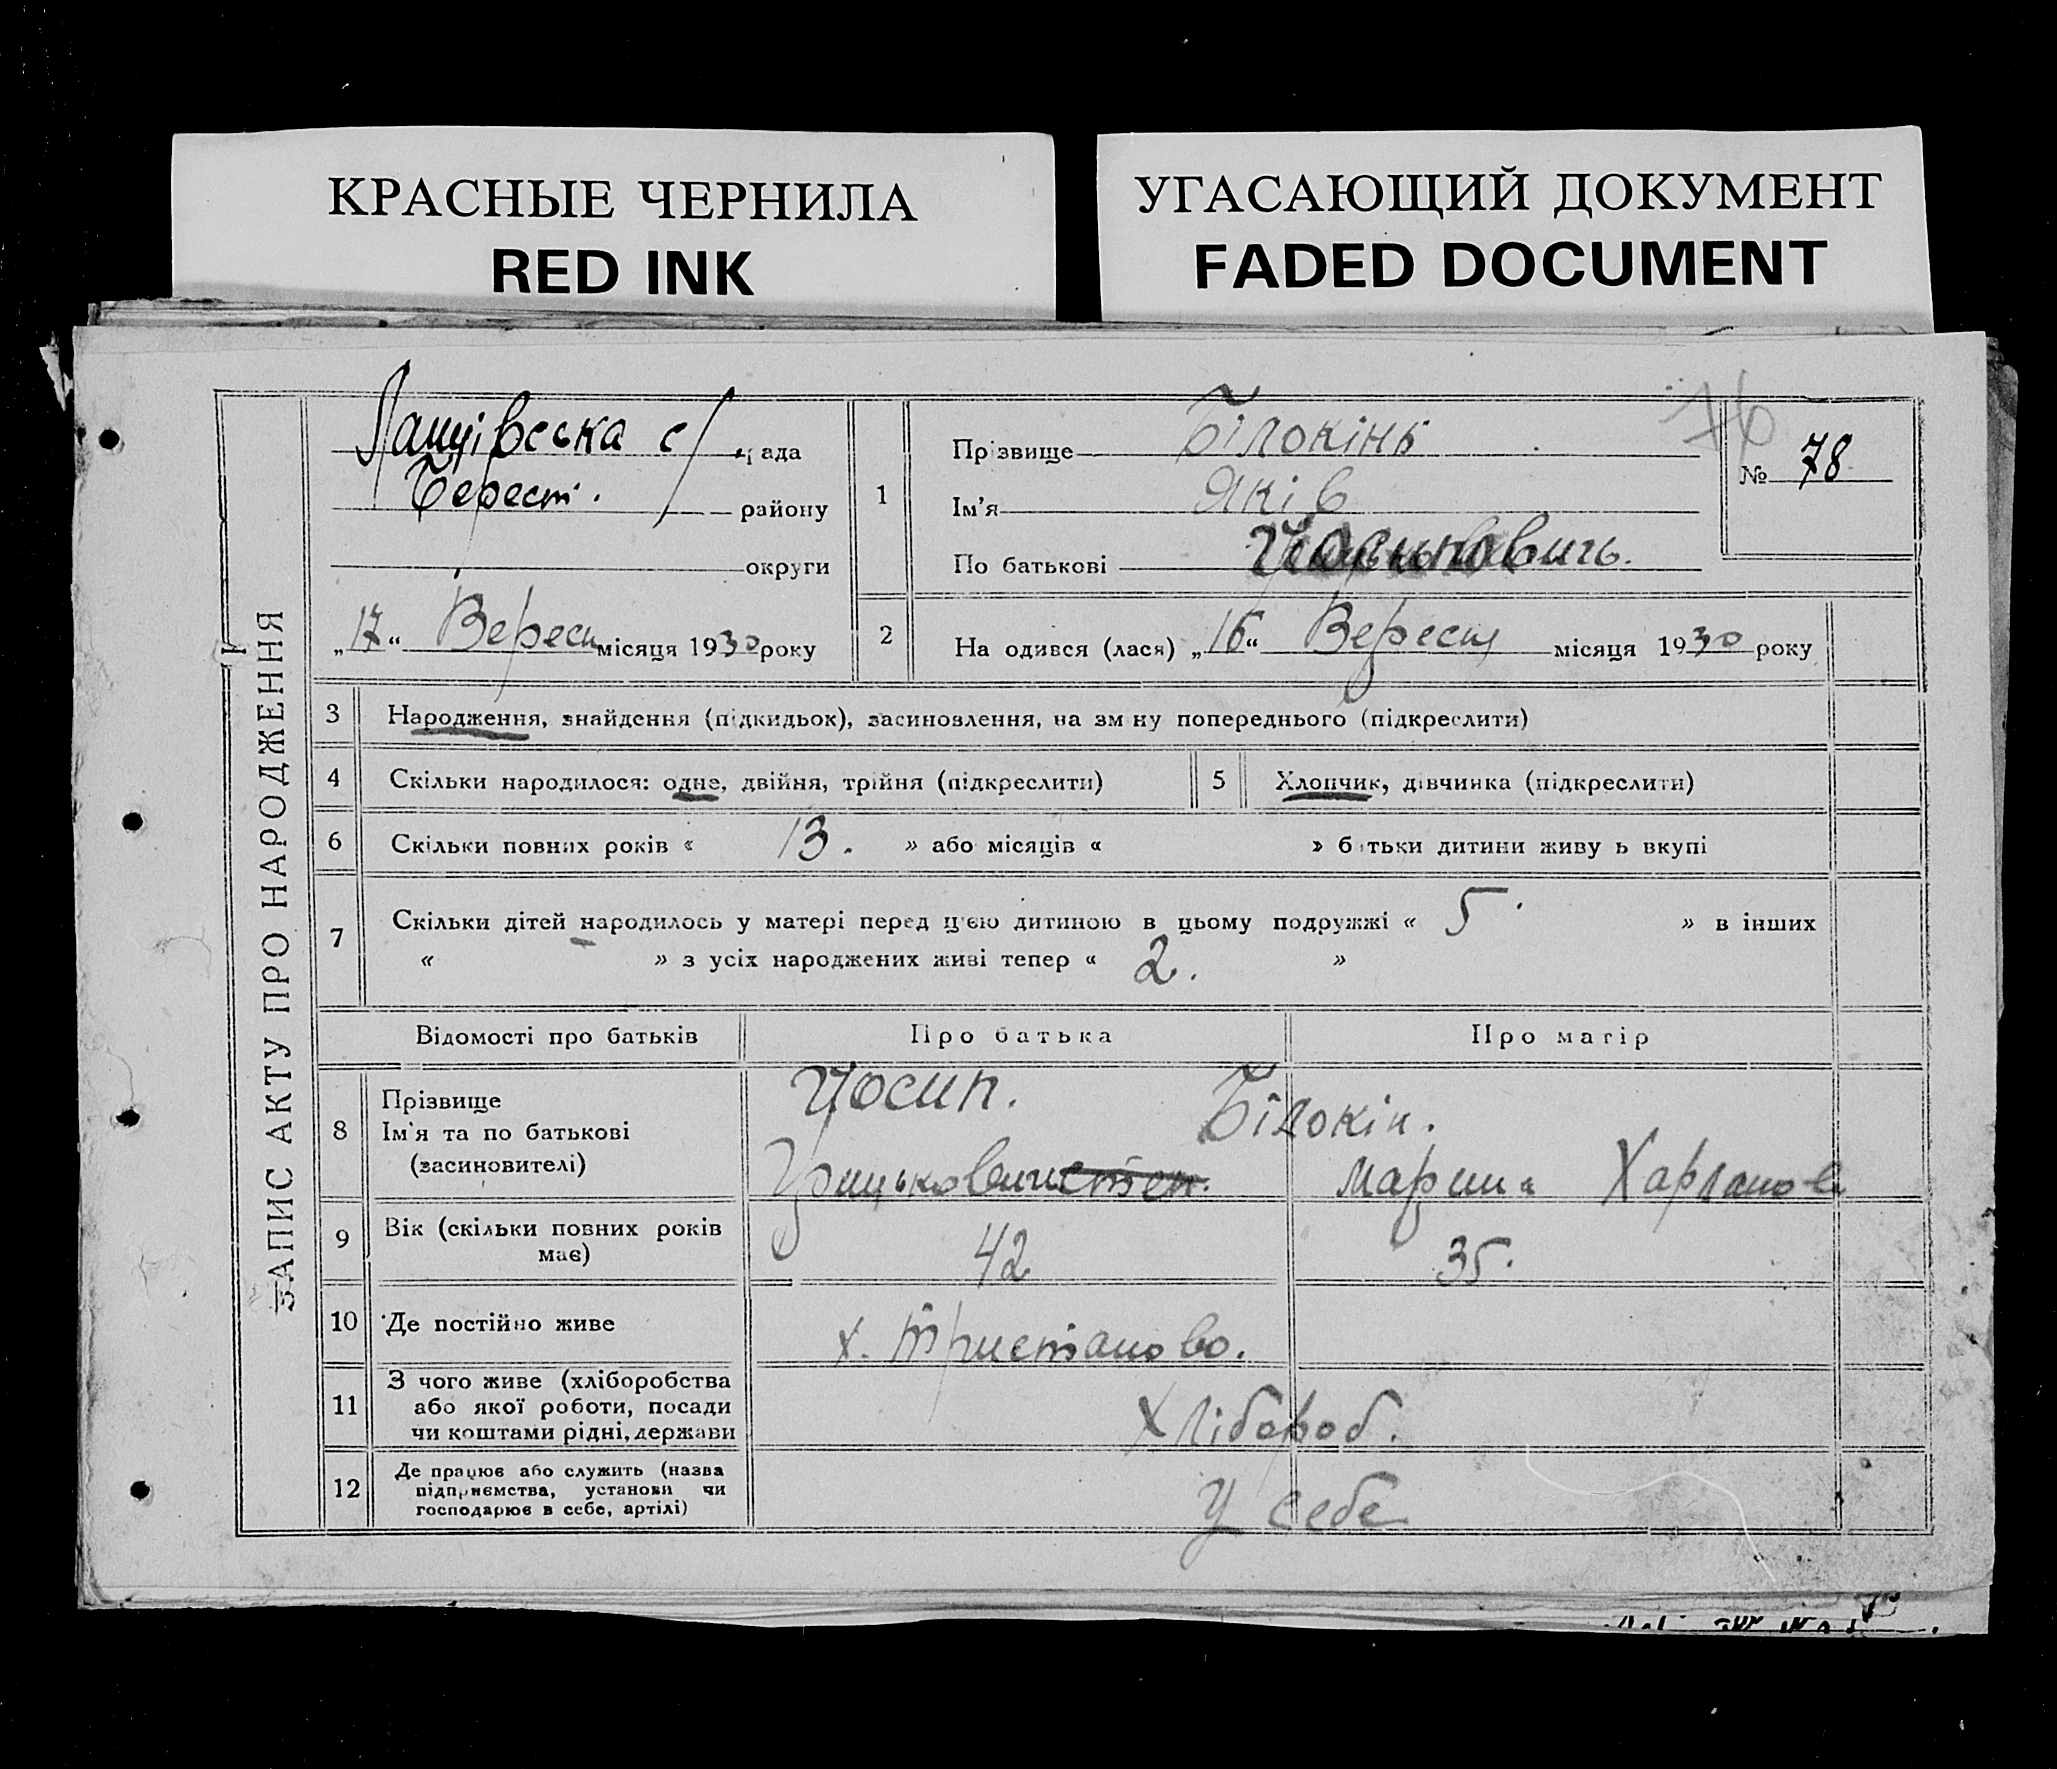 КРАСНЫЕ ЧЕРНИЛА
RED INK
УГАСАЮЩИЙ ДОКУМЕНТ
FADED DOCUMENT
ЗАПИС АКТУ ПРО НАРОДЖЕННЯ
с/ рада
Берест. району
округи
„17“ Вересн місяця 1930 року
76
№ 78
1
Прізвище Білокінь
Ім'я Яків
По батькові Йосиповичь.
2
На одився (лася) „16“ Вересня місяця 1930 року
3 Народження, знайдення (підкидьок), засиновлення, на зм ну попереднього (підкреслити)
4 Скільки народилося: одне, двійня, трійня (підкреслити)
5 Хлопчик, дівчинка (підкреслити)
6 Скільки повних років « 13. » або місяців « » б тьки дитини живу ь вкупі
7 Скільки дітей народилось у матері перед цією дитиною в цьому подружжі « 5. » в інших
« » з усіх народжених живі тепер « 2. »
Відомості про батьків Про батька Про матір
8 Прізвище
Ім'я та по батькові
(засиновителі)
Йосип. Білокін.
Грицькович Марина Харланов
9 Вік (скільки повних років має) 42 35.
10 Де постійно живе х. Тристаново.
11 З чого живе (хліборобства
або якої роботи, посади
чи коштами рідні, держави
Хлібороб.
12 Де працює або служить (назва
підприємства, установи чи
господарює в себе, артілі)
У себе